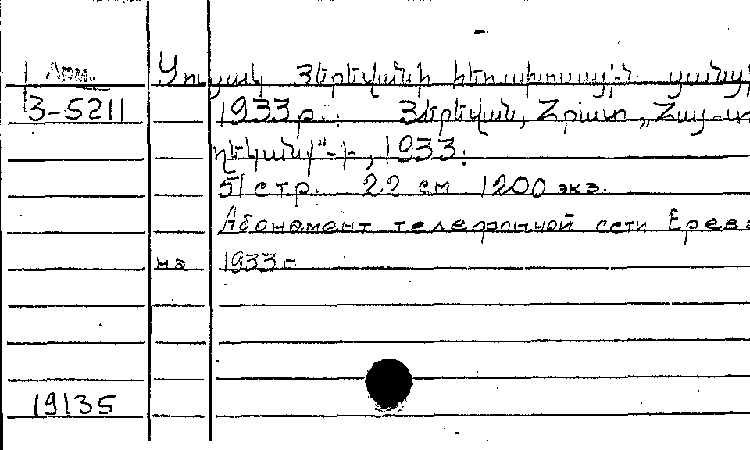 Арм.
3-5211
Ցուցակ Յերեվանի հեռախոսային ցանցի
1933 թ. Յերեվան, Հրատ. „Հայ-
1933.
51 стр. 22 см 1200 экз.
Абонамент телефонной сети Ерева
на 1933 г
19135